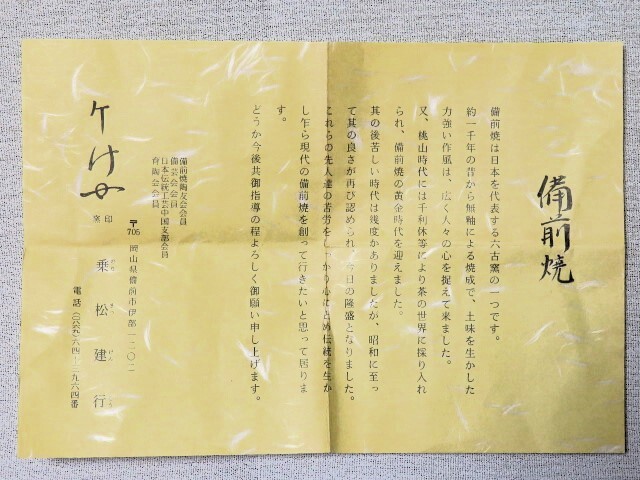 備前焼
備前焼は日本を代表する六古窯の一つです。
約一千年の昔から無釉による焼成で、土味を生かした
力強い作風は、広く人々の心を捉えて来ました。
又、桃山時代には千利休等により茶の世界に採り入れ
られ、備前焼の黄金時代を迎えました。
其の後苦しい時代は幾度かありましたが、昭和に至っ
て其の良さが再び認められ、今日の隆盛となりました。
これらの先人達の苦労をしっかり心にとめ伝統を生か
し乍ら現代の備前焼を創って行きたいと思って居りま
す。
どうか今後共御指導の程よろしく御願い申し上げます。
備前焼陶友会会員
備芸会会員
日本伝統工芸中国支部会員
育陶会会員
〒705 岡山県備前市伊部一二〇二
窯印
乗松建行
電話(〇八六九)六四-二九六四番